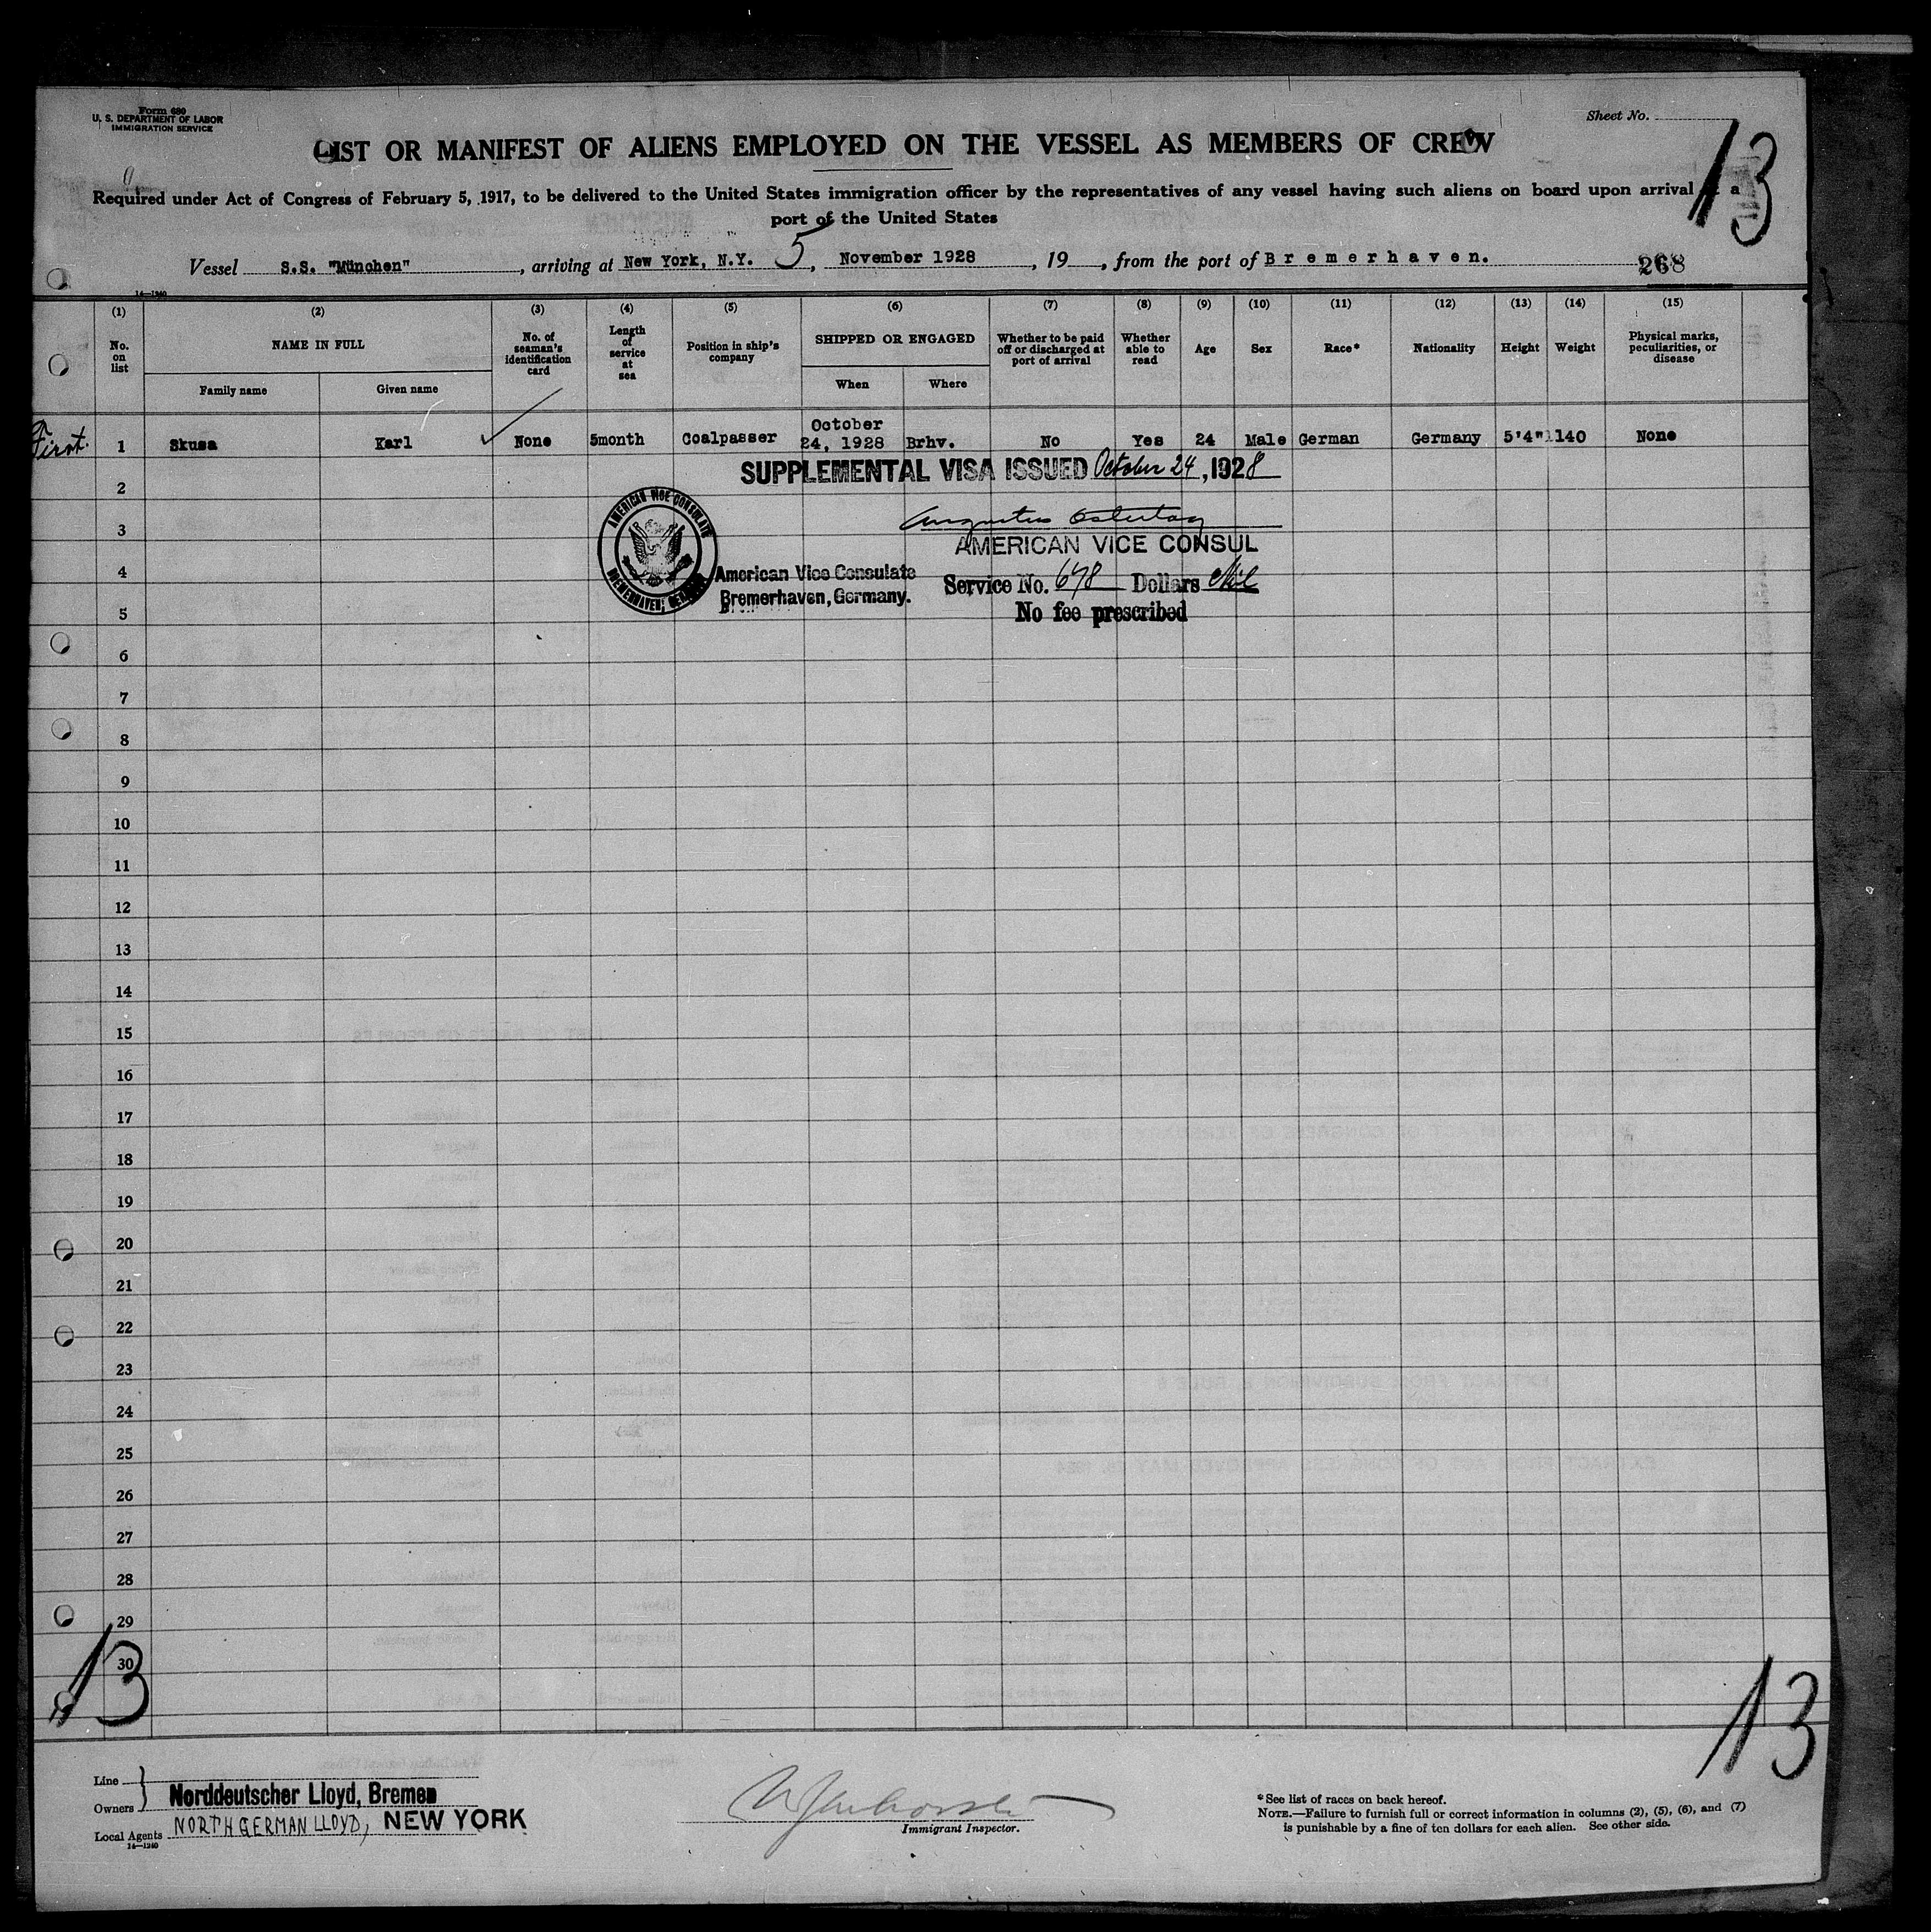 Form 680
U. S. DEPARTMENT OF LABOR
IMMIGRATION SERVICE
Sheet No.
13
LIST OR MANIFEST OF ALIENS EMPLOYED ON THE VESSEL AS MEMBERS OF CREW
Required under Act of Congress of February 5, 1917, to be delivered to the United States immigration officer by the representatives of any vessel having such aliens on board upon arrival at a
port of the United States
Vessel S.S. "München", arriving at New York, N.Y. 5, November 1928, 19, from the port of Bremerhaven.
268
14—1240
(1) (2) (3) (4) (5) (6) (7) (8) (9) (10) (11) (12) (13) (14) (15)
No. on list
NAME IN FULL
Family name
Given name
No. of seaman's identification card
Length of service at sea
Position in ship's company
SHIPPED OR ENGAGED
When
Where
Whether to be paid off or discharged at port of arrival
Whether able to read
Age
Sex
Race*
Nationality
Height
Weight
Physical marks, peculiarities, or disease
First. 1 Skusa Karl None 5month Coalpasser October 24, 1928 Brhv. No Yes 24 Male German Germany 5'4" 140 None
SUPPLEMENTAL VISA ISSUED October 24, 1928
2
AMERICAN VICE CONSULATE
BREMERHAVEN, GERMANY
3
AMERICAN VICE CONSUL
4
American Vice Consulate
Bremerhaven, Germany.
Service No. 678 Dollars Nil
No fee prescribed
5
6
7
8
9
10
11
12
13
14
15
16
17
18
19
20
21
22
23
24
25
26
27
28
29
30
13
13
Line
Owners
Norddeutscher Lloyd, Bremen
Local Agents NORTH GERMAN LLOYD, NEW YORK
14—1240
Immigrant Inspector.
*See list of races on back hereof.
NOTE.—Failure to furnish full or correct information in columns (2), (5), (6), and (7)
is punishable by a fine of ten dollars for each alien. See other side.